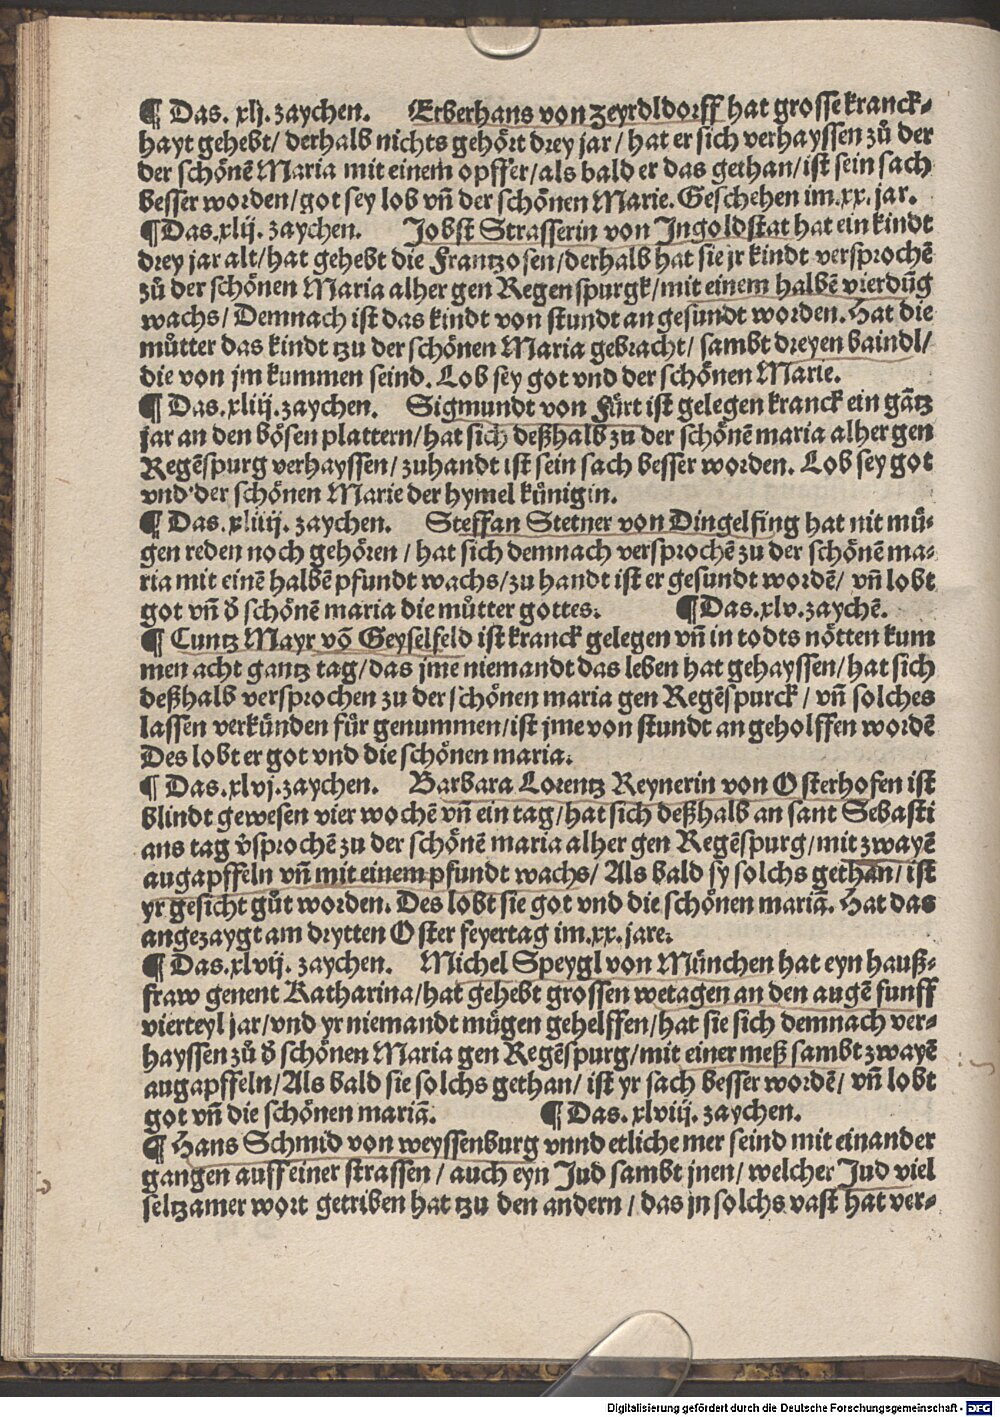 ¶ Das. xlj. zaychen. Erberhans von Zeyrdldorff hat grosse kranck⸗
hayt gehebt/ derhalb nichts gehört drey jar/ hat er sich verhayssen zů der
der schönē Maria mit einem opffer/ als bald er das gethan/ ist sein sach
besser worden/ got sey lob vñ der schönen Marie. Geschehen im .xx. jar.
¶ Das. xlij. zaychen. Jobst Strasserin von Ingolstat hat ein kindt
drey jar alt/ hat gehebt die Frantzosen/ derhalb hat sie jr kindt versprochē
zů der schönen Maria alher gen Regenspurgk/ mit einem halbē vierdūg
wachs/ Demnach ist das kindt von stundt an gesundt worden. Hat die
můtter das kindt tzu der schönen Maria gebracht/ sambt dreyen baindl/
die von jm kummen seind. Lob sey got vnd der schönen Marie.
¶ Das. xliij. zaychen. Sigmundt von Fürt ist gelegen kranck ein gātz
jar an den bösen plattern/ hat sich deßhalb zu der schönē maria alher gen
Regēspurg verhayssen/ zuhandt ist sein sach besser worden. Lob sey got
vnd der schönen Marie der hymel künigin.
¶ Das. xliiij. zaychen. Steffan Stetner von Dingelfing hat nit mü⸗
gen reden noch gehören/ hat sich demnach versprochē zu der schönē ma⸗
ria mit einē halbē pfundt wachs/ zu handt ist er gesundt wordē/ vñ lobt
got vñ d̕ schönē maria die můtter gottes. ¶ Das. xlv. zaychē.
¶ Cuntz Mayr vō Geyselfeld ist kranck gelegen vñ in todts nötten kum
men acht gantz tag/ das jme niemandt das leben hat gehayssen/ hat sich
deßhalb versprochen zu der schönen maria gen Regēspurck/ vñ solches
lassen verkünden für genummen/ ist jme von stundt an geholffen wordē
Des lobt er got vnd die schönen maria.
¶ Das. xlvj. zaychen. Barbara Lorentz Reynerin von Osterhofen ist
blindt gewesen vier wochē vñ ein tag/ hat sich deßhalb an sant Sebasti
ans tag v̕sprochē zu der schönē maria alher gen Regēspurg/ mit zwayē
augapffeln vñ mit einem pfundt wachs/ Als bald sy solchs gethan/ ist
yr gesicht gůt worden. Des lobt sie got vnd die schönen mariā. Hat das
angezaygt am drytten Oster feyertag im .xx. jare.
¶ Das. xlvij. zaychen. Michel Speygl von München hat eyn hauß⸗
fraw genent Katharina/ hat gehebt grossen wetagen an den augē funff
vierteyl jar/ vnd yr niemandt mügen gehelffen/ hat sie sich demnach ver⸗
hayssen zů d̕ schönen Maria gen Regēspurg/ mit einer meß sambt zwayē
augapffeln/ Als bald sie solchs gethan/ ist yr sach besser wordē/ vñ lobt
got vñ die schönen mariā. ¶ Das. xlviij. zaychen.
¶ Hans Schmid von weyssenburg vnnd etliche mer seind mit einander
gangen auff einer strassen/ auch eyn Jud sambt jnen/ welcher Jud viel
seltzamer wort getriben hat tzu den andern/ das jn solchs vast hat ver⸗
Digitalisierung gefördert durch die Deutsche Forschungsgemeinschaft - DFG